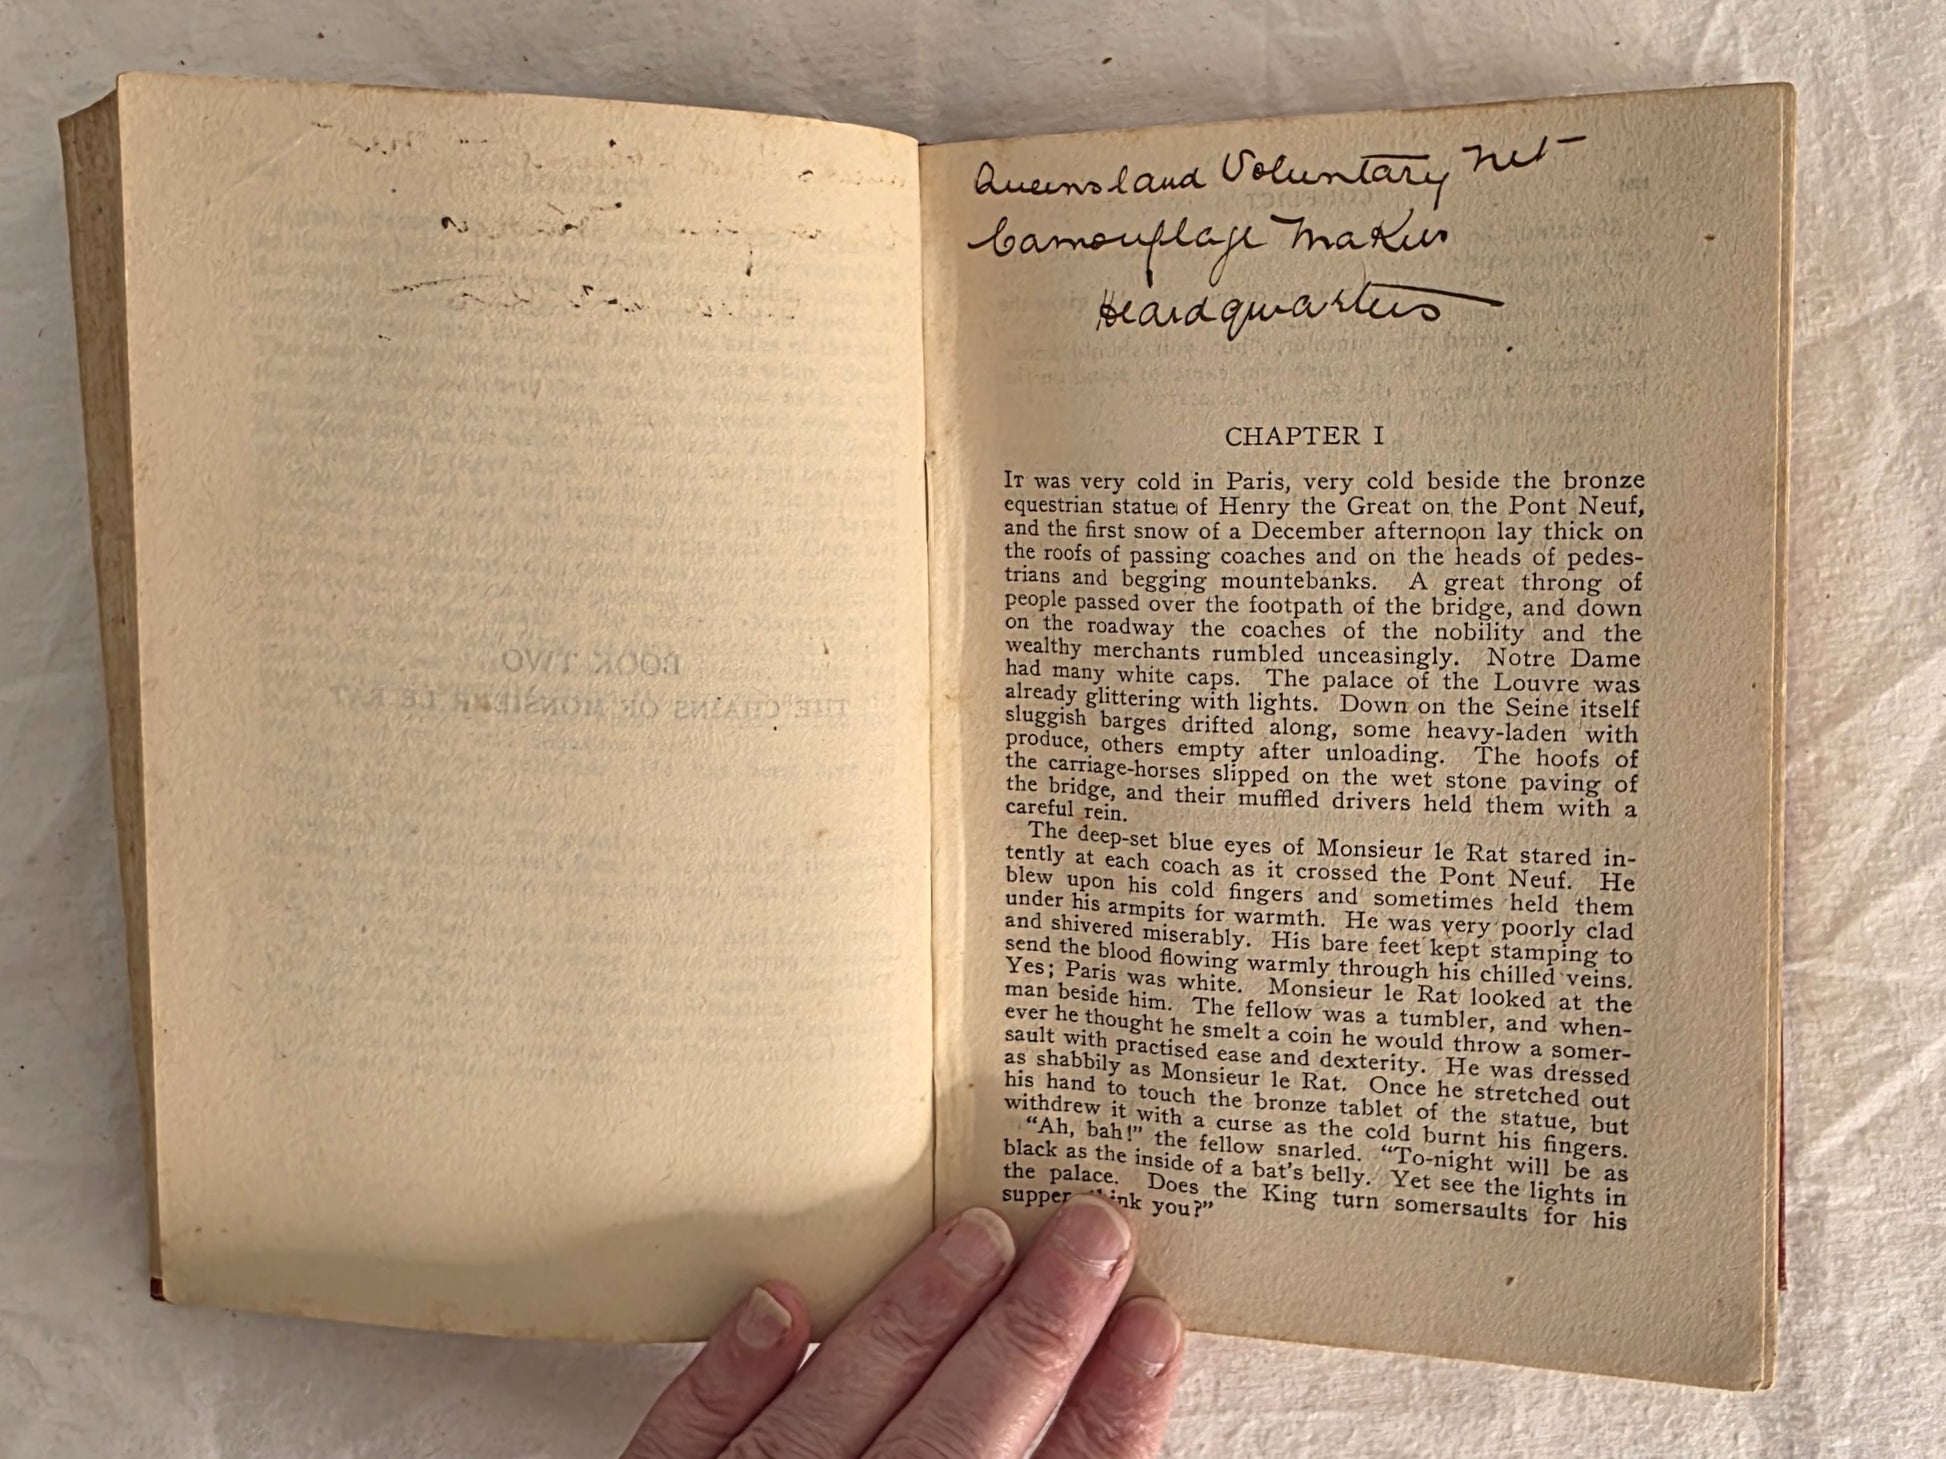 BOOK TWO
THE CHAINS OF MONSIEUR LE RAT
Queensland Voluntary Net
Camouflage Makers
Heardquarters
CHAPTER I
It was very cold in Paris, very cold beside the bronze
equestrian statue of Henry the Great on the Pont Neuf,
and the first snow of a December afternoon lay thick on
the roofs of passing coaches and on the heads of pedes-
trians and begging mountebanks. A great throng of
people passed over the footpath of the bridge, and down
on the roadway the coaches of the nobility and the
wealthy merchants rumbled unceasingly. Notre Dame
had many white caps. The palace of the Louvre was
already glittering with lights. Down on the Seine itself
sluggish barges drifted along, some heavy-laden with
produce, others empty after unloading. The hoofs of
the carriage-horses slipped on the wet stone paving of
the bridge, and their muffled drivers held them with a
careful rein.
The deep-set blue eyes of Monsieur le Rat stared in-
tently at each coach as it crossed the Pont Neuf. He
blew upon his cold fingers and sometimes held them
under his armpits for warmth. He was very poorly clad
and shivered miserably. His bare feet kept stamping to
send the blood flowing warmly through his chilled veins.
Yes; Paris was white. Monsieur le Rat looked at the
man beside him. The fellow was a tumbler, and when-
ever he thought he smelt a coin he would throw a somer-
sault with practised ease and dexterity. He was dressed
as shabbily as Monsieur le Rat. Once he stretched out
his hand to touch the bronze tablet of the statue, but
withdrew it with a curse as the cold burnt his fingers.
"Ah, bah!" the fellow snarled. "To-night will be as
black as the inside of a bat's belly. Yet see the lights in
the palace. Does the King turn somersaults for his
supper think you?"